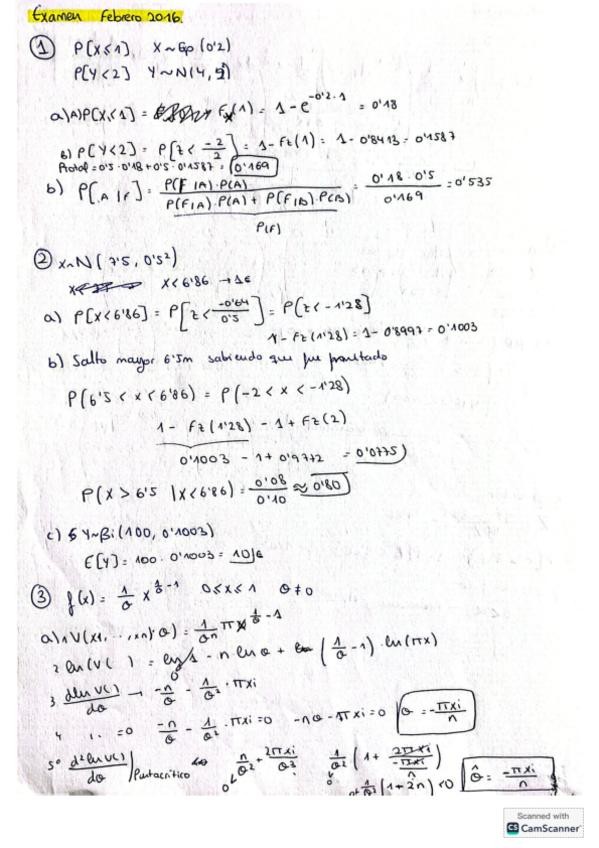 Examen Febrero 2016.
① P[X≤1] X~Exp(0'2)
P[Y<2] Y~N(4, 2²)
a) A) P[X≤1] = Fx(1) = 1 - e^(-0'2·1) = 0'18
B) P[Y<2] = P[Z < -2/2] = 1 - Fz(1) = 1 - 0'8413 = 0'1587
Ptotal = 0'5·0'18 + 0'5·0'1587 = 0'169
b) P[A|F] = P(F|A)·P(A) / (P(F|A)·P(A) + P(F|B)·P(B)) = 0'18·0'5 / 0'169 = 0'535
P(F)
② X~N(7'5, 0'5²)
X<6'86 → 1€
a) P[X<6'86] = P[Z < -0'64/0'5] = P[Z < -1'28]
1 - Fz(1'28) = 1 - 0'8997 = 0'1003
b) Salto mayor 6'5m sabiendo que fue
P(6'5 < X < 6'86) = P(-2 < X < -1'28)
1 - Fz(1'28) - 1 + Fz(2)
0'1003 - 1 + 0'9772 = 0'0775
P(X > 6'5 | X<6'86) = 0'08/0'10 ≈ 0'80
c) Y~Bi(100, 0'1003)
E[Y] = 100·0'1003 = 10€
③ f(x) = 1/θ x^(1/θ - 1) 0≤x≤1 θ≠0
a) 1 V(x1, ..., xn; θ) = 1/θⁿ πx^(1/θ - 1)
2 ln(V( ) = ln 1 - n·ln θ + (1/θ - 1)·ln(πx)
3 dlnV( )/dθ → -n/θ - 1/θ² · πxi
4 =0 -n/θ - 1/θ² · πxi = 0 -nθ - πxi = 0 θ = -πxi/n
5º d²lnV( )/dθ |Puntacrítico n/θ² + 2πxi/θ³ 1/θ² (1 + 2πxi / (-πxi/n))
(1+2n) <0 θ̂ = -πxi/n
Scanned with
CS CamScanner